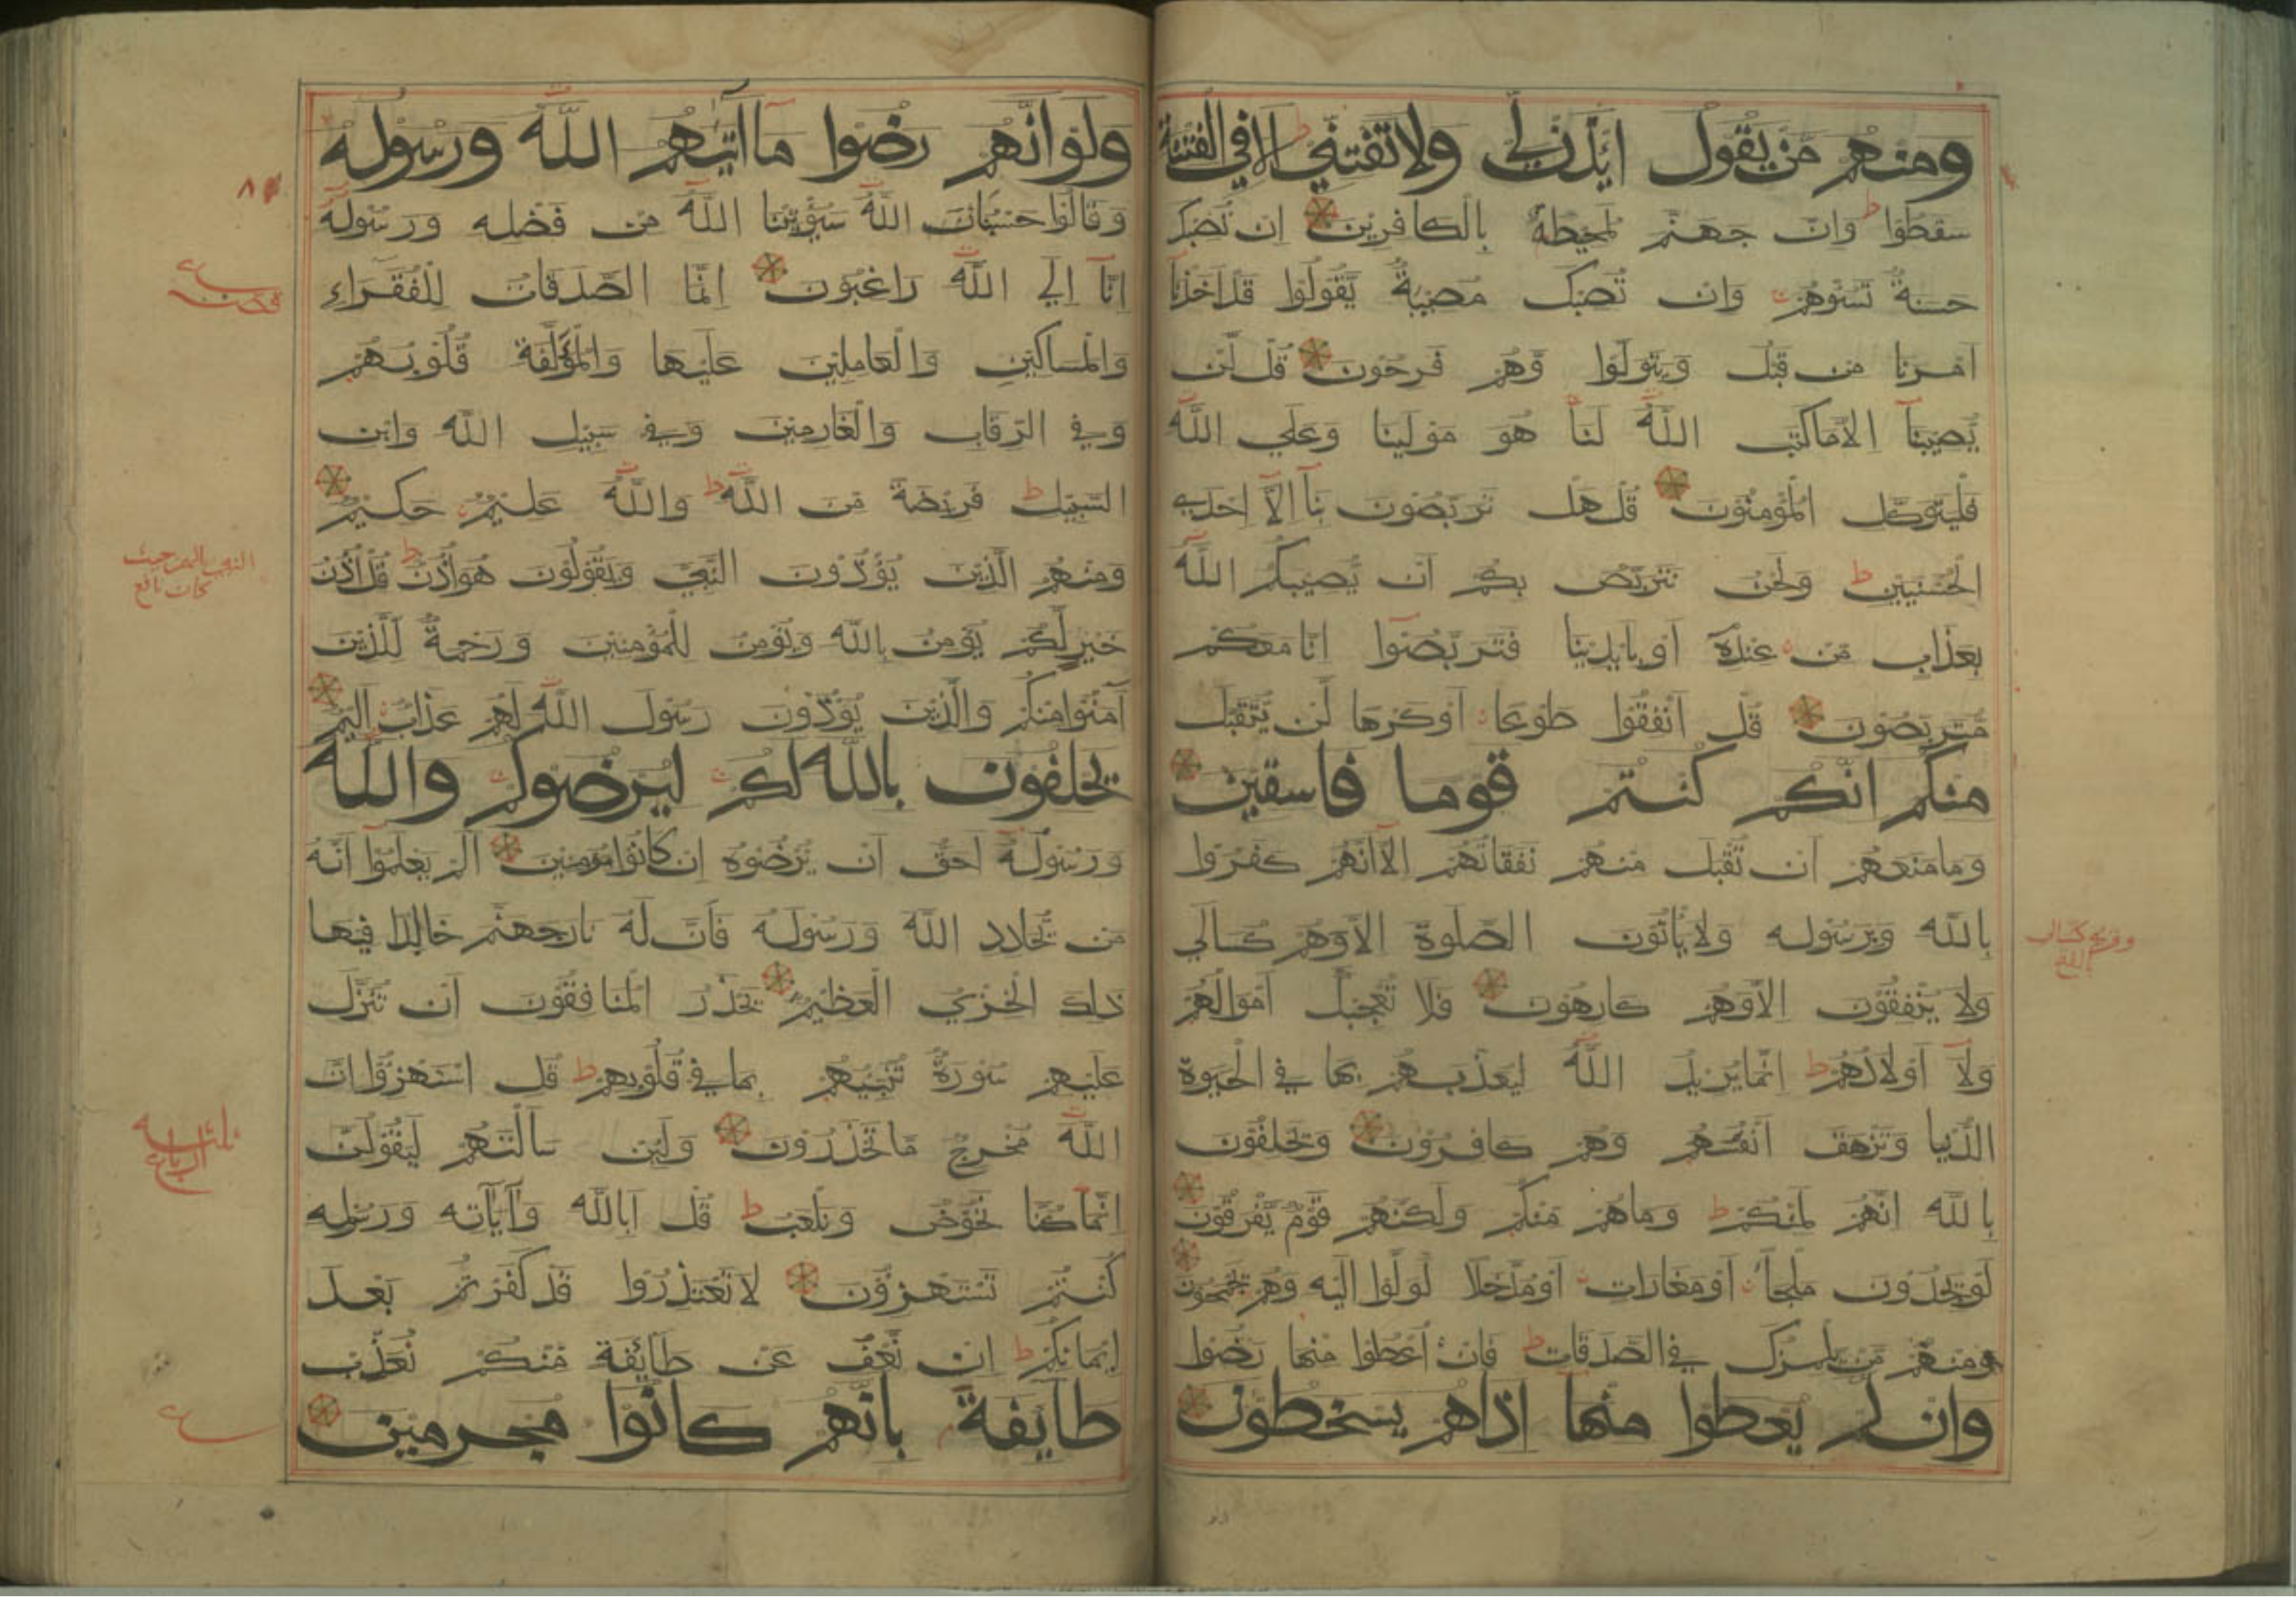 ومنهم من يقول ائذن لي ولا تفتني الا في الفتنة
سقطوا ط وان جهنم لمحيطة بالكافرين ان تصبك
حسنة تسؤهم وان تصبك مصيبة يقولوا قد اخذنا
امرنا من قبل ويتولوا وهم فرحون قل لن
يصيبنا الا ما كتب الله لنا هو مولينا وعلي الله
فليتوكل المؤمنون قل هل تربصون بنا الا احدي
الحسنيين ط ونحن نتربص بكم ان يصيبكم الله
بعذاب من عنده او بايدينا فتربصوا انا معكم
متربصون قل انفقوا طوعا او كرها لن يتقبل
منكم انكم كنتم قوما فاسقين
وما منعهم ان تقبل منهم نفقاتهم الا انهم كفروا
بالله وبرسوله ولا ياتون الصلوة الا وهم كسالي
ولا ينفقون الا وهم كارهون فلا تعجبك اموالهم
ولا اولادهم ط انما يريد الله ليعذبهم بها في الحيوة
الدنيا وتزهق انفسهم وهم كافرون ويحلفون
بالله انهم لمنكم ط وما هم منكم ولكنهم قوم يفرقون
لو يجدون ملجأ او مغارات او مدخلا لولوا اليه وهم يجمحون
ومنهم من يلمزك في الصدقات ط فان اعطوا منها رضوا
وان لم يعطوا منها اذا هم يسخطون
ولو انهم رضوا ما آتيهم الله ورسوله
وقالوا حسبنا الله سيؤتينا الله من فضله ورسوله
انا الي الله راغبون انما الصدقات للفقراء
والمساكين والعاملين عليها والمؤلفة قلوبهم
وفي الرقاب والغارمين وفي سبيل الله وابن
السبيل ط فريضة من الله ط والله عليم حكيم
ومنهم الذين يؤذون النبي ويقولون هو اذن ط قل اذن
خير لكم يؤمن بالله ويؤمن للمؤمنين ورحمة للذين
آمنوا منكم والذين يؤذون رسول الله لهم عذاب اليم
يحلفون بالله لكم ليرضوكم والله
ورسوله احق ان يرضوه ان كانوا مؤمنين الم يعلموا انه
من يحادد الله ورسوله فان له نار جهنم خالدا فيها
ذلك الخزي العظيم يحذر المنافقون ان تنزل
عليهم سورة تنبئهم بما في قلوبهم ط قل استهزؤا ان
الله مخرج ما تحذرون ولئن سالتهم ليقولن
انما كنا نخوض ونلعب ط قل ابالله وآياته ورسوله
كنتم تستهزؤن لا تعتذروا قد كفرتم بعد
ايمانكم ط ان نعف عن طائفة منكم نعذب
طايفة بانهم كانوا مجرمين